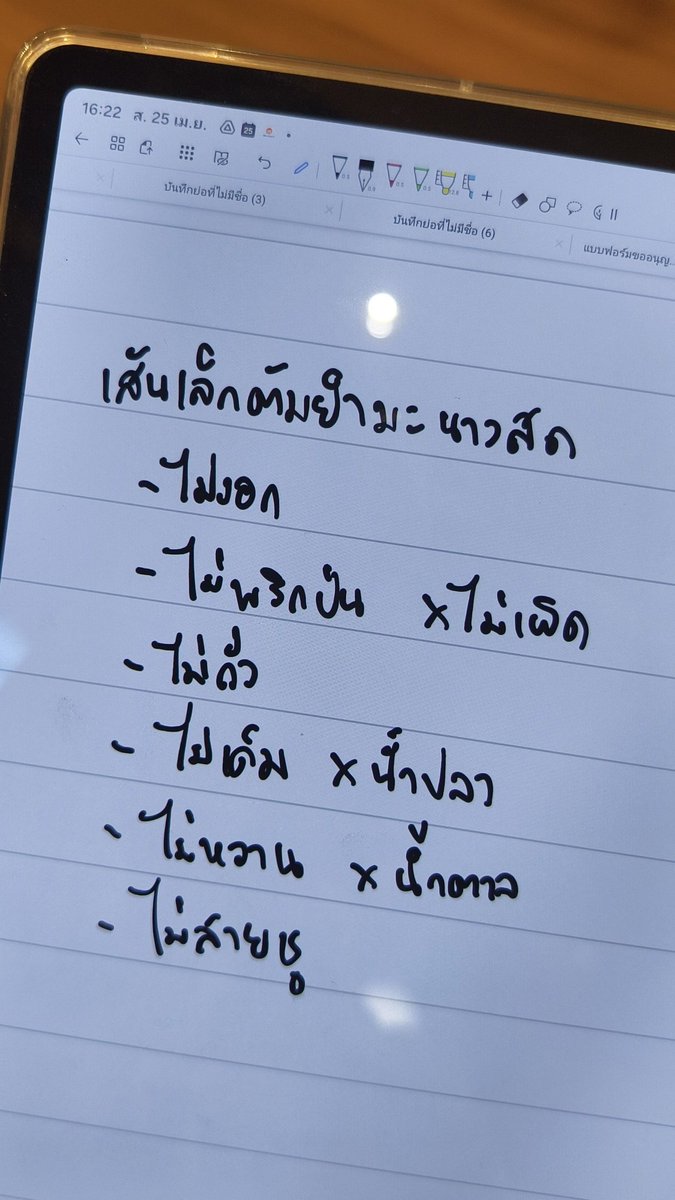 16:22 ส. 25 เม.ย. 25
0.5 0.9 0.5 0.5 2.8
บันทึกย่อที่ไม่มีชื่อ (3) บันทึกย่อที่ไม่มีชื่อ (6) แบบฟอร์มขออนุญ...
เส้นเล็กต้มยำมะนาวสด
- ไม่งอก
- ไม่พริกป่น xไม่เผ็ด
- ไม่ถั่ว
- ไม่เค็ม x น้ำปลา
- ไม่หวาน x น้ำตาล
- ไม่สายชู